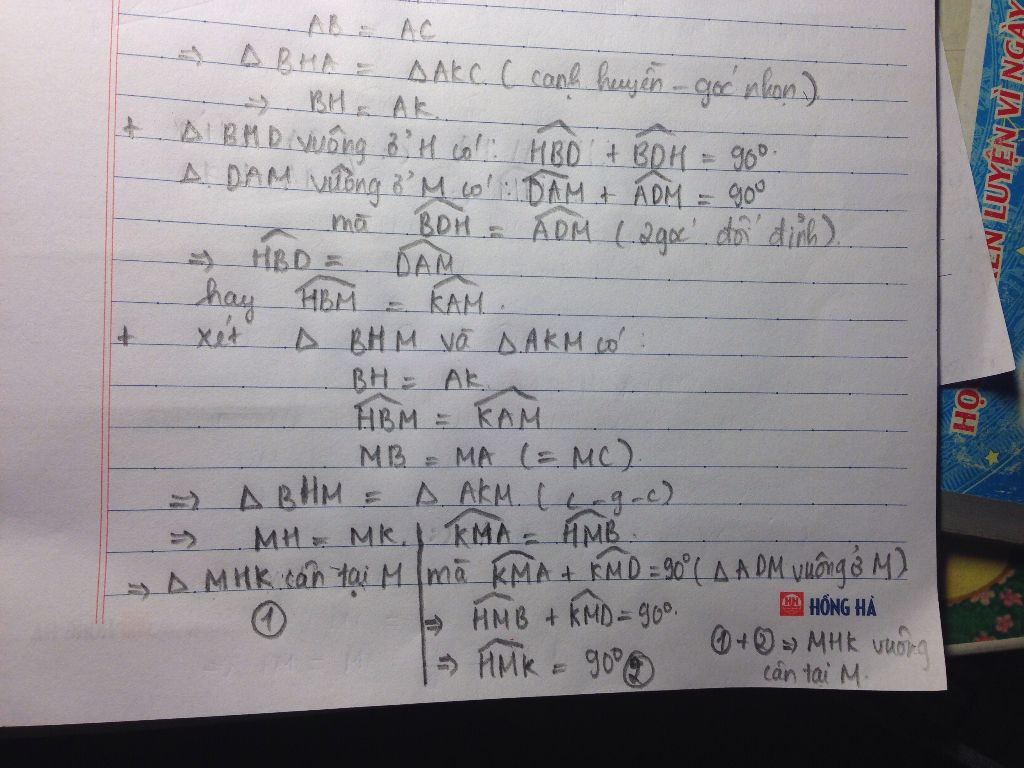 AB = AC
=> Δ BHA = ΔAKC ( cạnh huyền - góc nhọn.)
=> BH = AK.
+ Δ BHD vuông ở H có: HBD + BDH = 90°.
Δ DAM vuông ở M có: DAM + ADM = 90°
mà BDH = ADM ( 2 góc đối đỉnh).
=> HBD = DAM
hay HBM = KAM.
+ xét Δ BHM và ΔAKM có:
BH = AK
HBM = KAM
MB = MA (= MC)
=> Δ BHM = Δ AKM. ( c-g-c)
=> MH = MK.
=> Δ MHK cân tại M
①
KMA = HMB.
mà KMA + KMD = 90° ( Δ ADM vuông ở M)
=> HMB + KMD = 90°.
=> HMK = 90° ②
HỒNG HÀ
① + ② => MHK vuông
cân tại M.
LUYỆN VÌ NGÀY
HỌ